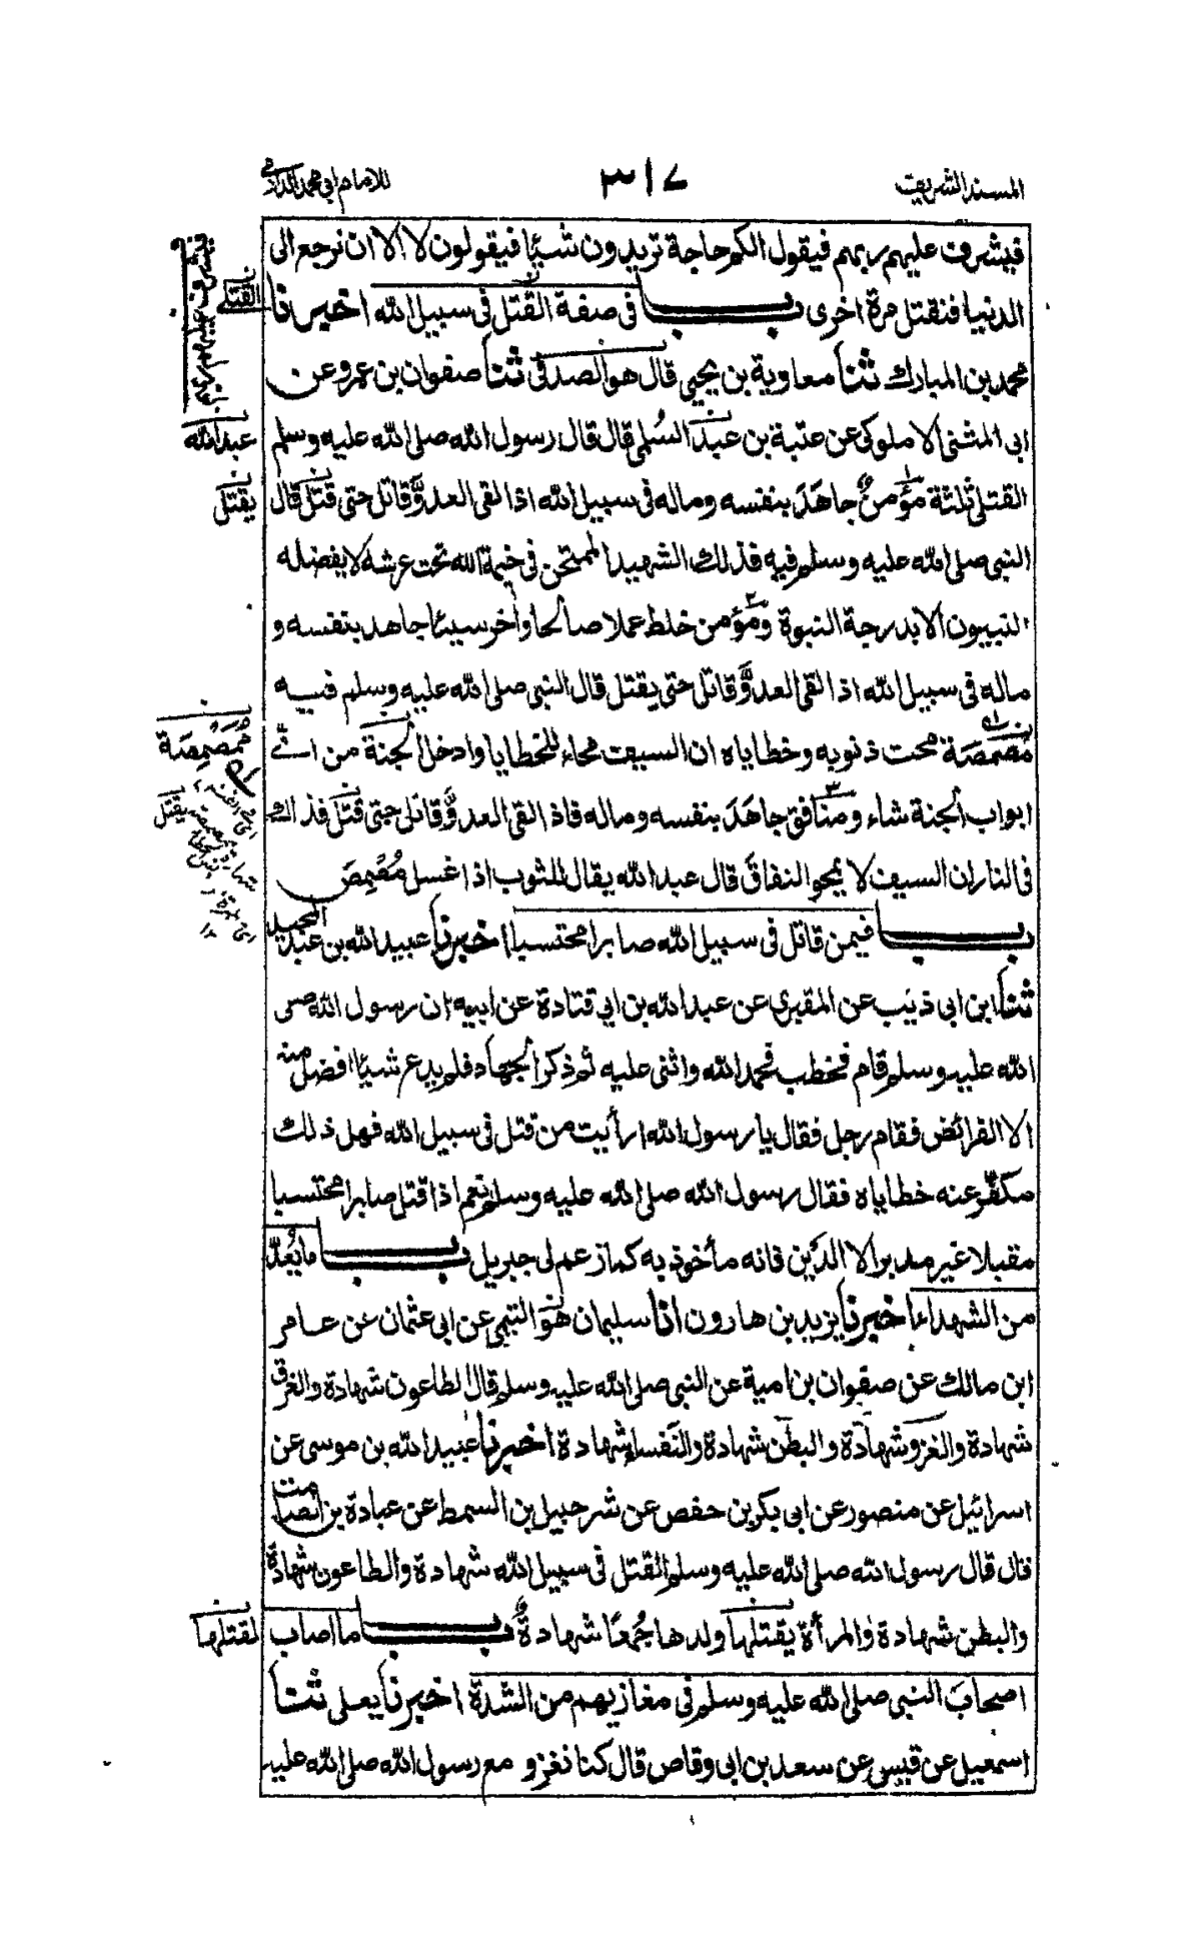 المسند الشريف
٣١٧
للامام ابي محمد الدارمي
فيشرف عليهم ربهم فيقول الكم حاجة تريدون شيئا فيقولون لا الا ان نرجع الى
الدنيا فنقتل مرة اخرى باب في صفة القتل في سبيل الله اخبرنا
القتلى
محمد بن المبارك ثنا معاوية بن يحيى قال هو الصدفي ثنا صفوان بن عمرو عن
ابى المثنى الاملوكى عن عتبة بن عبد السُلمى قال قال رسول الله صلى الله عليه وسلم
عبد الله
القتلى ثلثة مؤمنٌ جاهَدَ بنفسه وماله فى سبيل الله اذا لقى العدوَّ قاتل حتى قتل قال
يقتل
النبى صلى الله عليه وسلم فيه فذلك الشهيد الممتحن فى خيمة الله تحت عرشه لا يفضله
النبيون الا بدرجة النبوة ومؤمن خلط عملا صالحا وأخر سيئا جاهد بنفسه و
ماله فى سبيل الله اذا لقى العدوَّ قاتل حتى يقتل قال النبى صلى الله عليه وسلم فيه
مُصَمصَة محت ذنوبه وخطاياه ان السيف محاء للخطايا وادخل الجنة من اىّ
مُمَصْمِصَة
ابواب الجنة شاء ومنافق جاهَدَ بنفسه وماله فاذا لقى العدوَّ قاتل حتى قتل فذلك
يقتل
فى النار ان السيف لا يمحو النفاقَ قال عبد الله يقال للثوب اذا غسل مُصْمِصَ
باب فيمن قاتل فى سبيل الله صابرا محتسبا اخبرنا عبيد الله بن عبد المجيد
ثنا ابن ابى ذئب عن المقبرى عن عبد الله بن ابى قتادة عن ابيه ان رسول الله صلى
الله عليه وسلم قام فخطب فحمد الله واثنى عليه ثم ذكر الجهاد فلم يدع شيئا افضل منه
الا الفرائض فقام رجل فقال يا رسول الله ارأيت من قتل فى سبيل الله فهل ذلك
مكفّر عنه خطاياه فقال رسول الله صلى الله عليه وسلم نعم اذا قتل صابرا محتسبا
مقبلا غير مدبر الا الدَّين فانه مأخوذ به كما زعم لى جبريل باب ما يُعدّ
من الشهداء اخبرنا يزيد بن هارون انا سليمان هو التيمى عن ابى عثمان عن عامر
ابن مالك عن صفوان بن امية عن النبى صلى الله عليه وسلم قال الطاعون شهادة والغرق
شهادة والغزو شهادة والبطن شهادة والنفساء شهادة اخبرنا عبيد الله بن موسى عن
اسرائيل عن منصور عن ابى بكر بن حفص عن شرحبيل بن السمط عن عبادة بن الصامت
قال قال رسول الله صلى الله عليه وسلم القتل فى سبيل الله شهادة والطاعون شهادة
والبطن شهادة والمرأة يقتلها ولدها جُمعًا شهادةٌ باب ما اصاب
لقتلها
اصحابَ النبى صلى الله عليه وسلم فى مغازيهم من الشدة اخبرنا يعلى ثنا
اسمعيل عن قيس عن سعد بن ابى وقاص قال كنا نغزو مع رسول الله صلى الله عليه